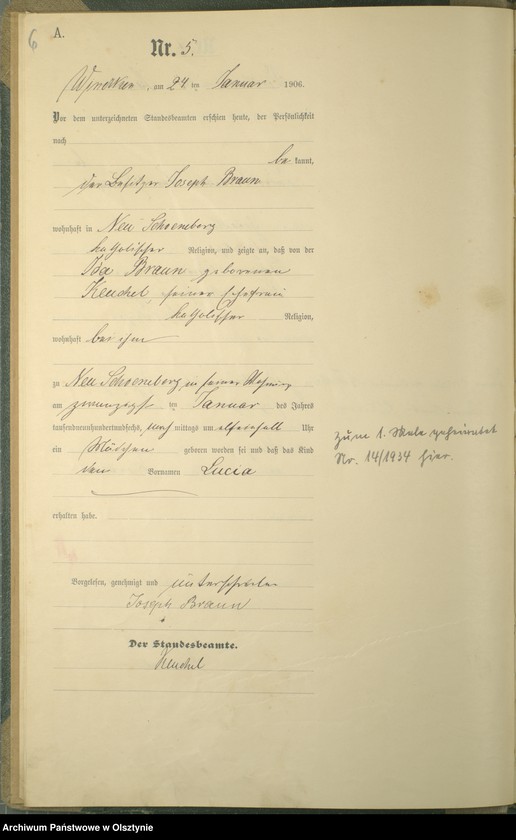 6
A.
Nr. 5.
am 24 ten Januar 1906.
Vor dem unterzeichneten Standesbeamten erschien heute, der Persönlichkeit
nach
be kannt,
der Besitzer Joseph Braun
wohnhaft in Neu Schoeneberg
katholischer Religion, und zeigte an, daß von der
Ida Braun geborenen
Keuchel seiner Ehefrau
katholischer Religion,
wohnhaft bei ihm
zu Neu Schoeneberg in seiner Wohnung
am zwanzigst ten Januar des Jahres
tausendneunhundertsechs, mittags um Uhr
ein Mädchen geboren worden sei und daß das Kind
den Vornamen Lucia
erhalten habe.
Vorgelesen, genehmigt und unterschrieben
Joseph Braun
Der Standesbeamte.
Keuchel
zum 1. Male geheiratet
Nr. 14/1934 hier.
Archiwum Państwowe w Olsztynie